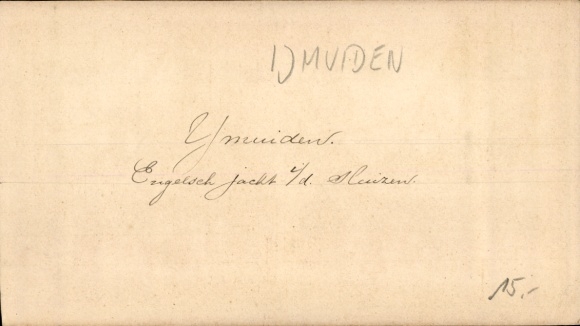 IJMUIDEN
IJmuiden.
Engelsch jacht i/d. Sluizen.
15.-